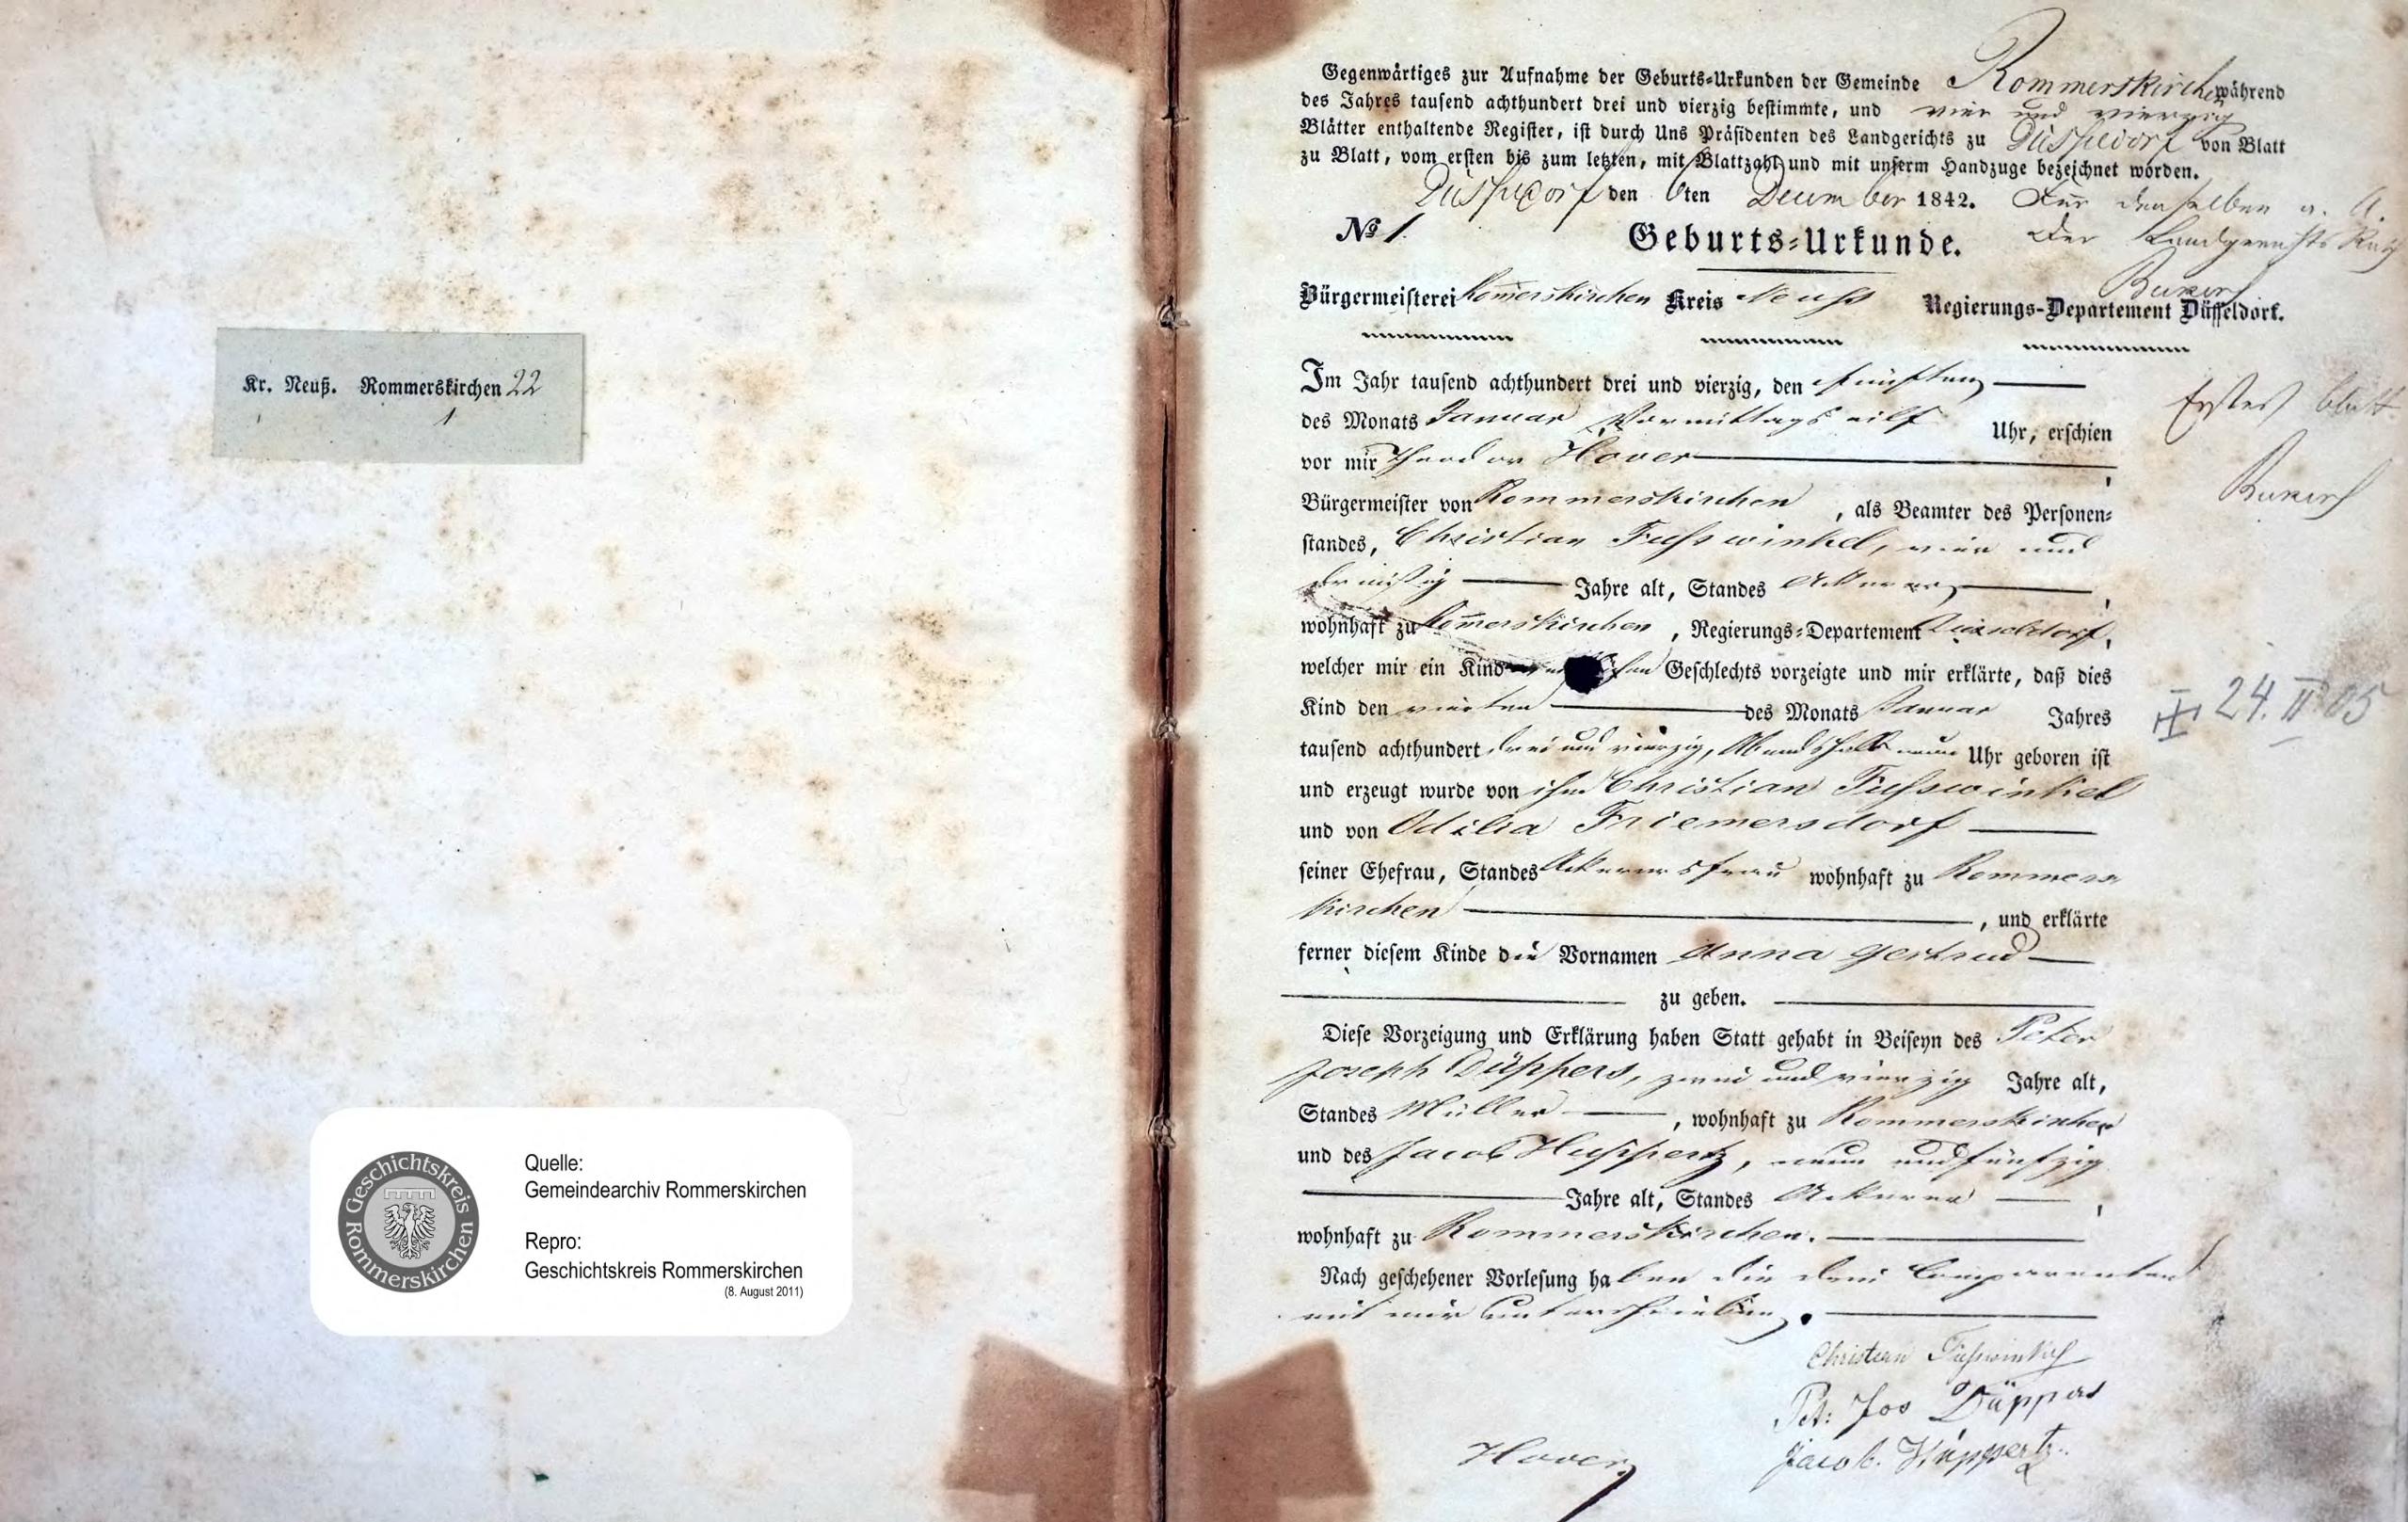 Kr. Neuß. Rommerskirchen 22
1
Geschichtskreis Rommerskirchen
Quelle:
Gemeindearchiv Rommerskirchen
Repro:
Geschichtskreis Rommerskirchen
(8. August 2011)
Gegenwärtiges zur Aufnahme der Geburts-Urkunden der Gemeinde Rommerskirchen während
des Jahres tausend achthundert drei und vierzig bestimmte, und vier und vierzig
Blätter enthaltende Register, ist durch Uns Präsidenten des Landgerichts zu Düsseldorf von Blatt
zu Blatt, vom ersten bis zum letzten, mit Blattzahl und mit unserm Handzuge bezeichnet worden.
Düsseldorf den 6ten December 1842. Für denselben
No 1. Geburts-Urkunde. Der Landgerichts Rath
Bürgermeisterei Rom̅erskirchen Kreis Neuss Regierungs-Departement Düsseldorf.
Im Jahr tausend achthundert drei und vierzig, den fünften
des Monats Januar Vormittags eilf Uhr, erschien
Erstes Blatt
vor mir Theodor Hover
Bürgermeister von Rommerskirchen, als Beamter des Personen-
standes, Christian Fusswinkel, vier und
dreissig Jahre alt, Standes Ackerer,
wohnhaft zu Rom̅erskirchen, Regierungs-Departement Düsseldorf,
welcher mir ein Kind Geschlechts vorzeigte und mir erklärte, daß dies
Kind den vierten des Monats Januar Jahres
24. II 05
tausend achthundert drei und vierzig, Abends halb neun Uhr geboren ist
und erzeugt wurde von ihm Christian Fusswinkel
und von Odilia Friemersdorf
seiner Ehefrau, Standes Ackerersfrau wohnhaft zu Rommers
kirchen, und erklärte
ferner diesem Kinde die Vornamen Anna Gertrud
zu geben.
Diese Vorzeigung und Erklärung haben Statt gehabt in Beiseyn des Peter
Joseph Düppers, zwei und vierzig Jahre alt,
Standes Müller, wohnhaft zu Rommerskirchen
und des Jacob Huppertz, neun und fünfzig
Jahre alt, Standes Ackerer,
wohnhaft zu Rommerskirchen.
Nach geschehener Vorlesung haben die drei Comparenten
mit mir unterschrieben.
Christian Fusswinkel
Pet: Jos Düppers
Jacob. Huppertz.
Hover